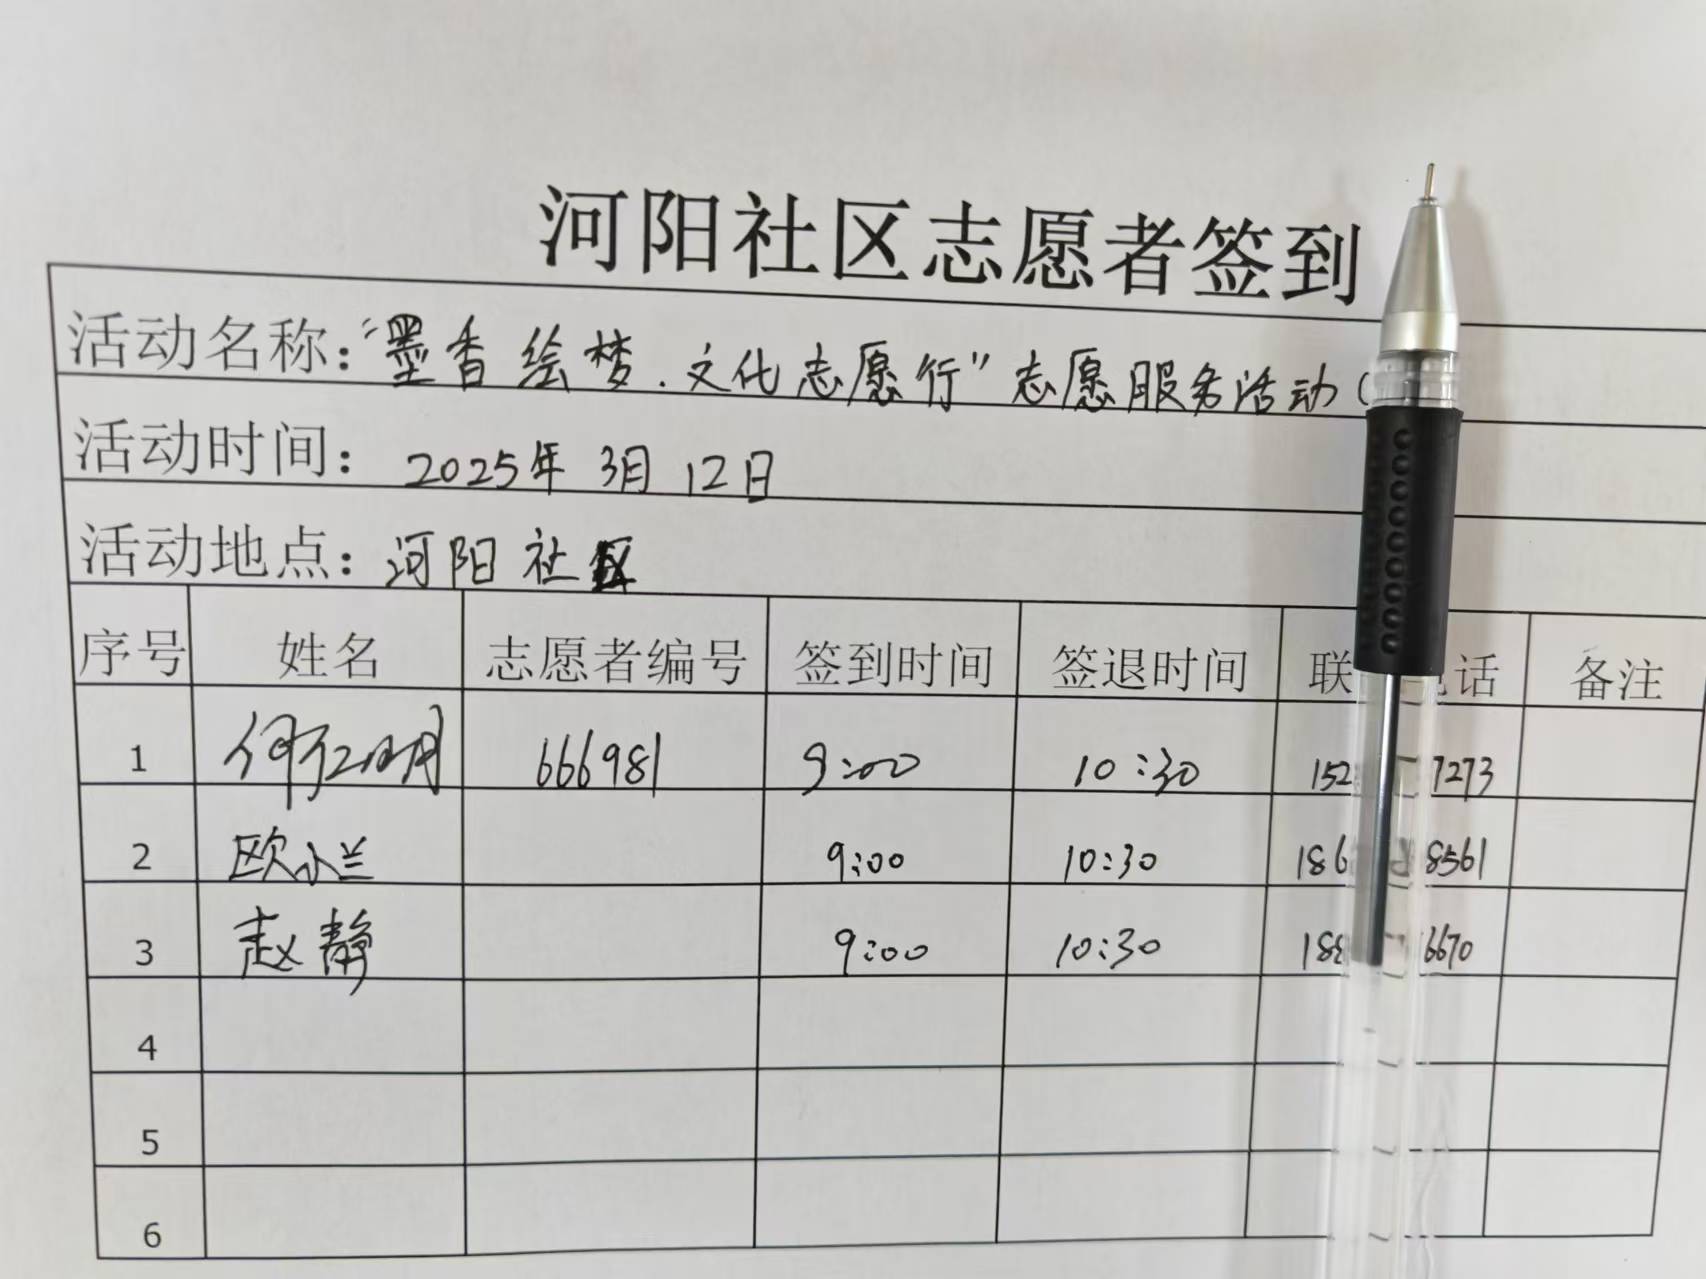 河阳社区志愿者签到
活动名称：“墨香绘梦.文化志愿行”志愿服务活动(
活动时间：2025年3月12日
活动地点：河阳社区
序号 姓名 志愿者编号 签到时间 签退时间 联 话 备注
1 何 明 666981 9:00 10:30 152 7273
2 欧小兰 9:00 10:30 186 8561
3 赵静 9:00 10:30 188 6670
4
5
6